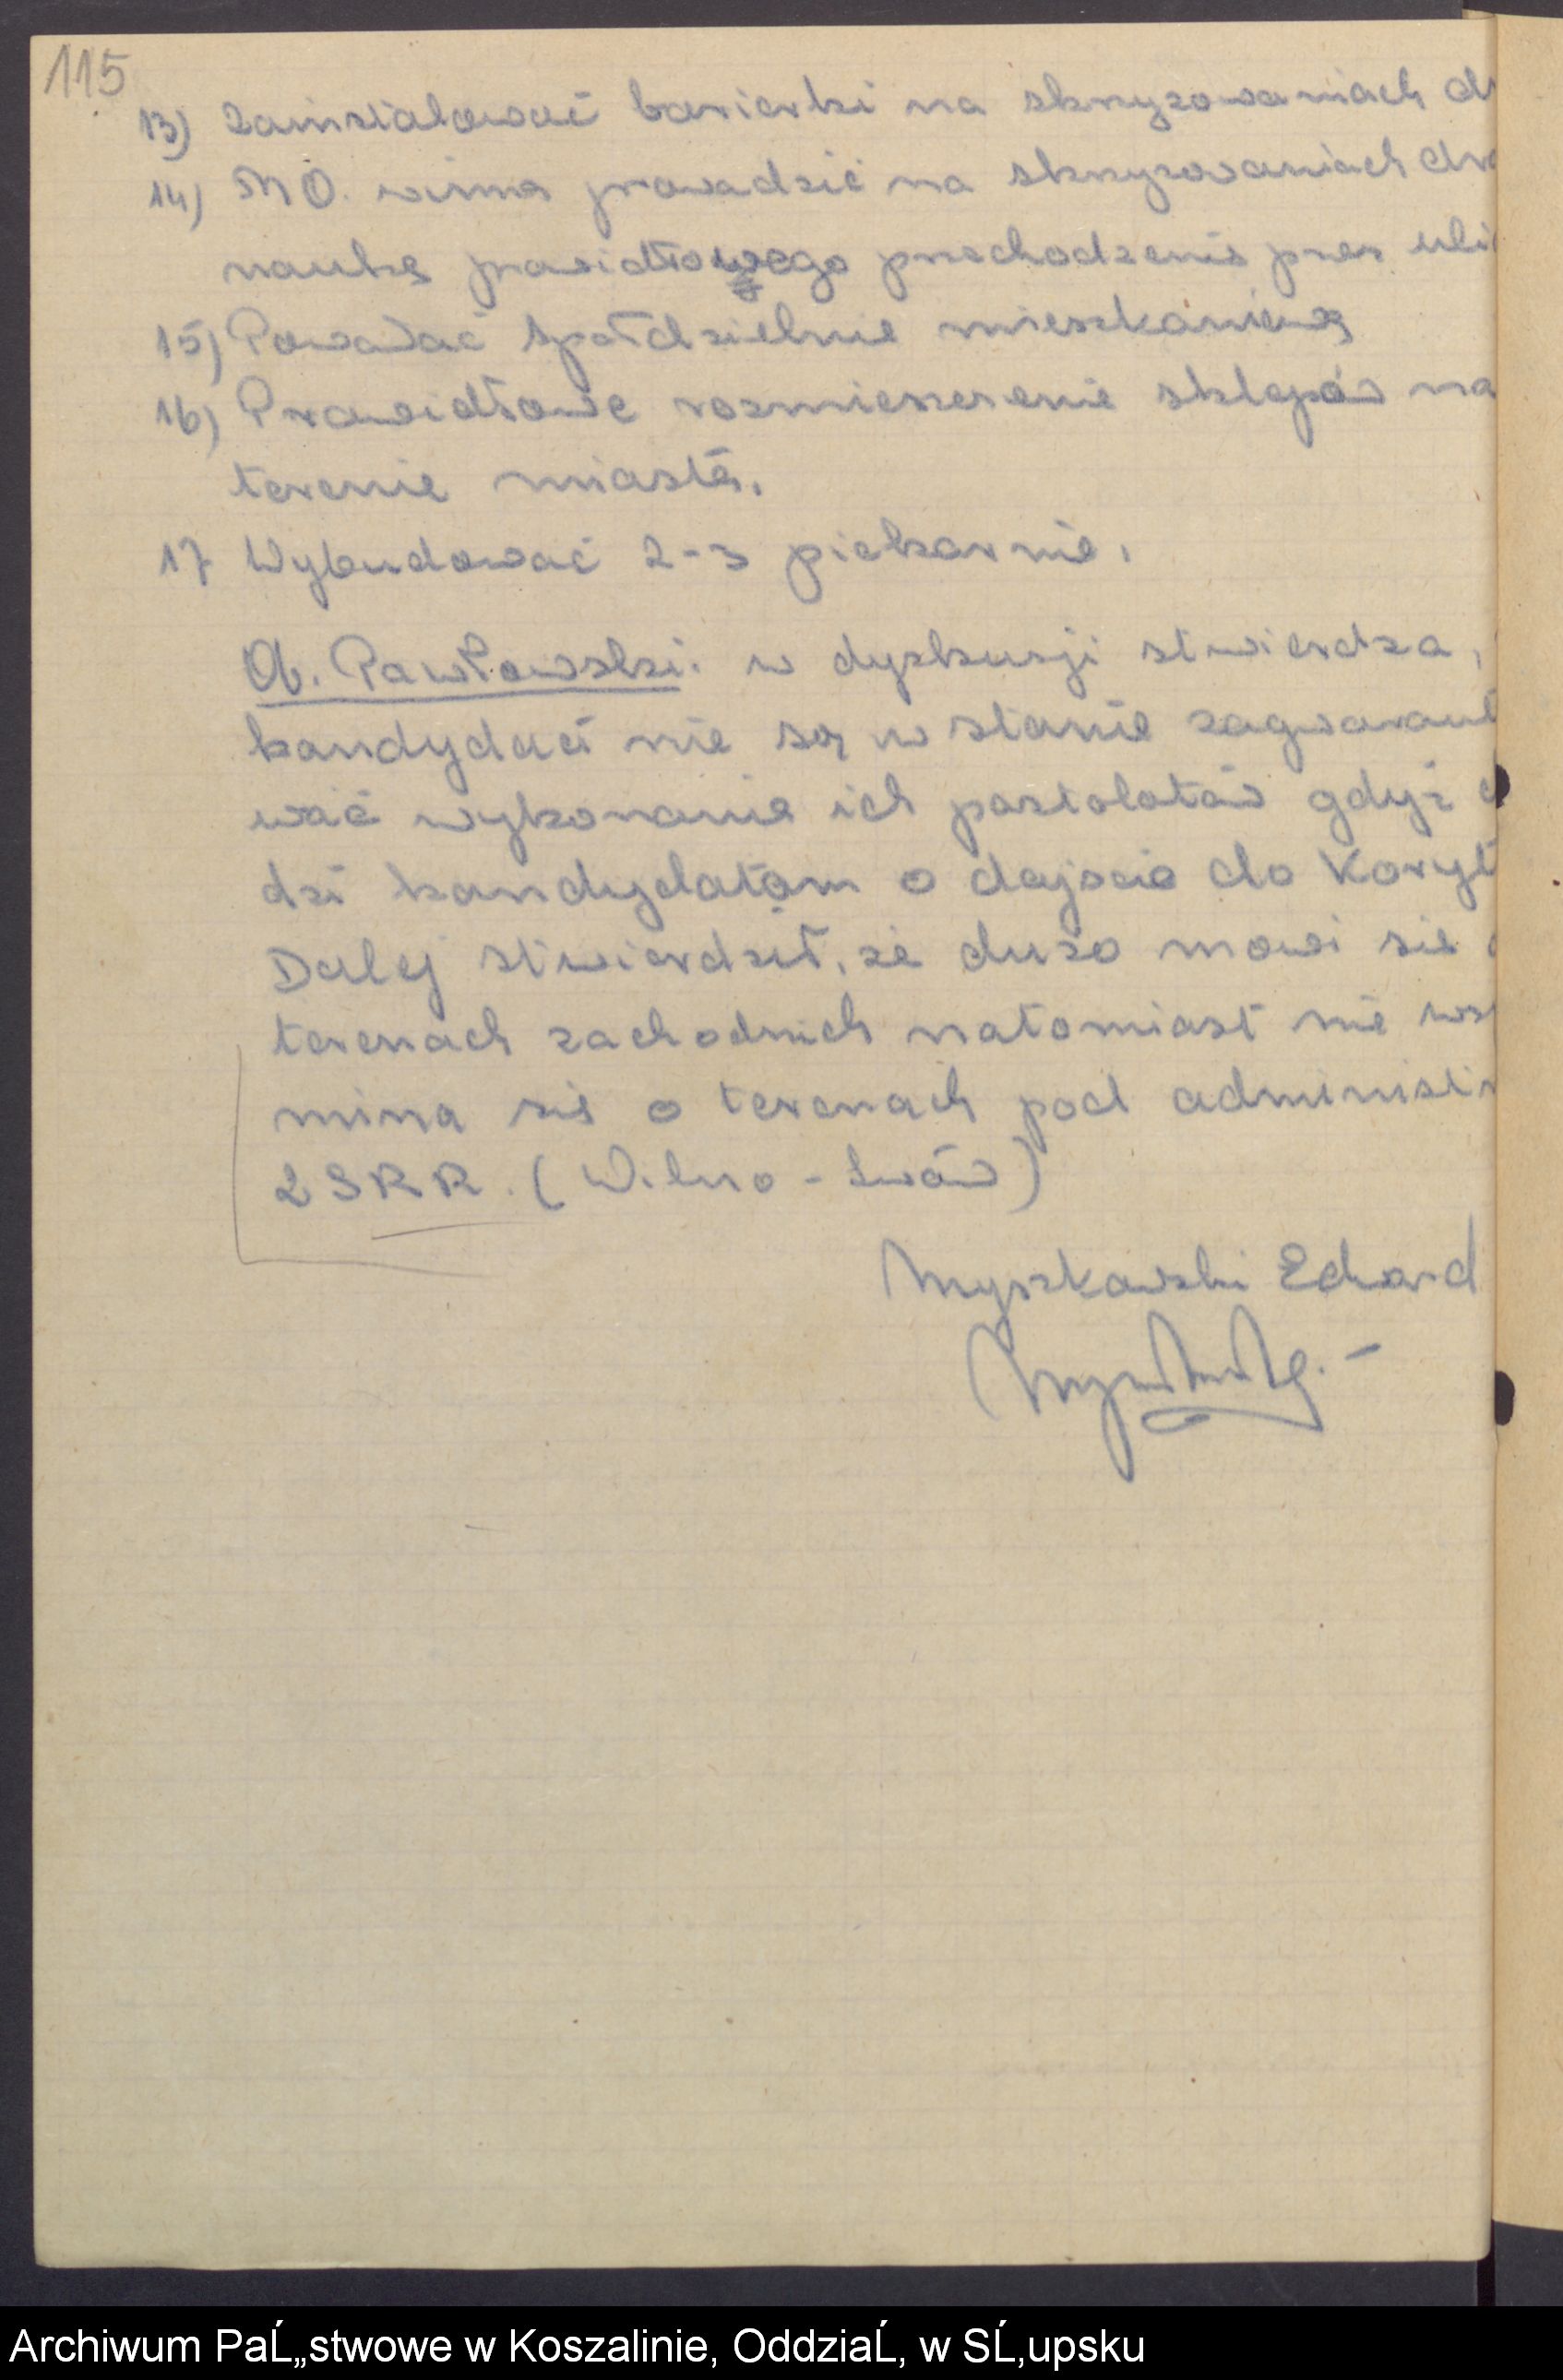 115
13) Zainstalować barierki na skrzyzowaniach dr
14) MO. winna prowadzić na skrzyzowaniach dro
naukę prawidłowego przechodzenia przez uli
15) Powołać spółdzielnie mieszkaniową
16) Prawidłowe rozmieszczenie sklepów na
terenie miasta.
17 Wybudować 2-3 piekarnie.
Ob. Pawłowski. w dyskusji stwierdza,
kandydaci nie są w stanie zagwarant
wać wykonanie ich postolatów gdyż
dzi kandydatom o dojscie do Koryt
Dalej stwierdził, że duzo mowi sie
terenach zachodnich natomiast nie wsp
mina sie o terenach pod administr
ZSRR. (Wilno - Lwów)
Myszkowski Edward
Archiwum PaĹ„stwowe w Koszalinie, OddziaĹ‚ w SĹ‚upsku